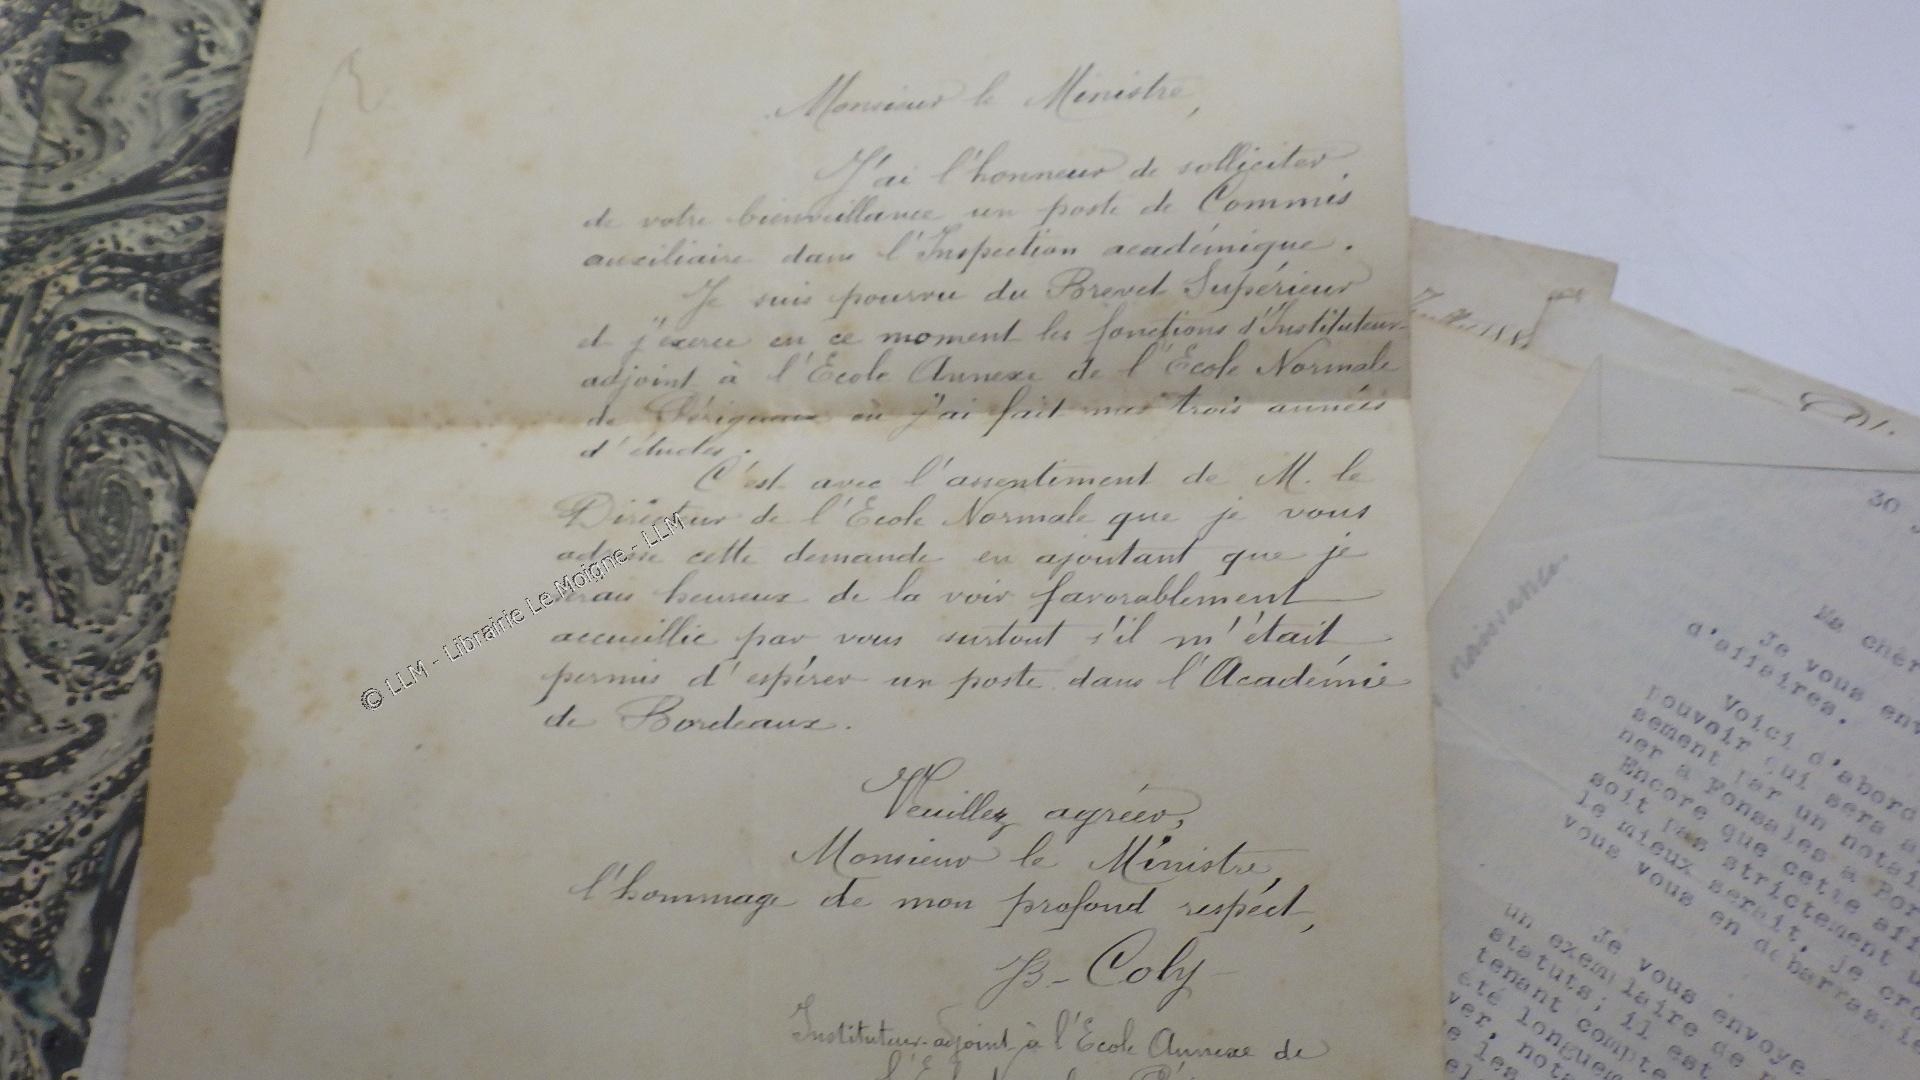 Monsieur le Ministre,
J'ai l'honneur de solliciter
de votre bienveillance un poste de Commis
auxiliaire dans l'Inspection académique.
Je suis pourvu du Brevet Supérieur
et j'exerce en ce moment les fonctions d'Instituteur-
adjoint à l'Ecole Annexe de l'Ecole Normale
de Périgueux où j'ai fait mes trois années
d'études.
C'est avec l'assentiment de M. le
Directeur de l'Ecole Normale que je vous
adresse cette demande en ajoutant que je
serais heureux de la voir favorablement
accueillie par vous surtout s'il m'était
permis d'espérer un poste dans l'Académie
de Bordeaux.
Veuillez agréer,
Monsieur le Ministre,
l'hommage de mon profond respect,
B- Coly-
Instituteur-adjoint à l'Ecole Annexe de
© LLM - Librairie Le Moigne - LLM
naissance.
30
Ma chèr
Je vous env
d'affaires.
Voici d'abord
pouvoir qui sera
sement par un notai
ner à Fonsales à
Encore que cette aff
soit pas strictement
le mieux serait, je cro
vous vous en débarras
Je vous envoye
un exemplaire de
statuts; il est
tenant compte
été longuem
ver, not
les